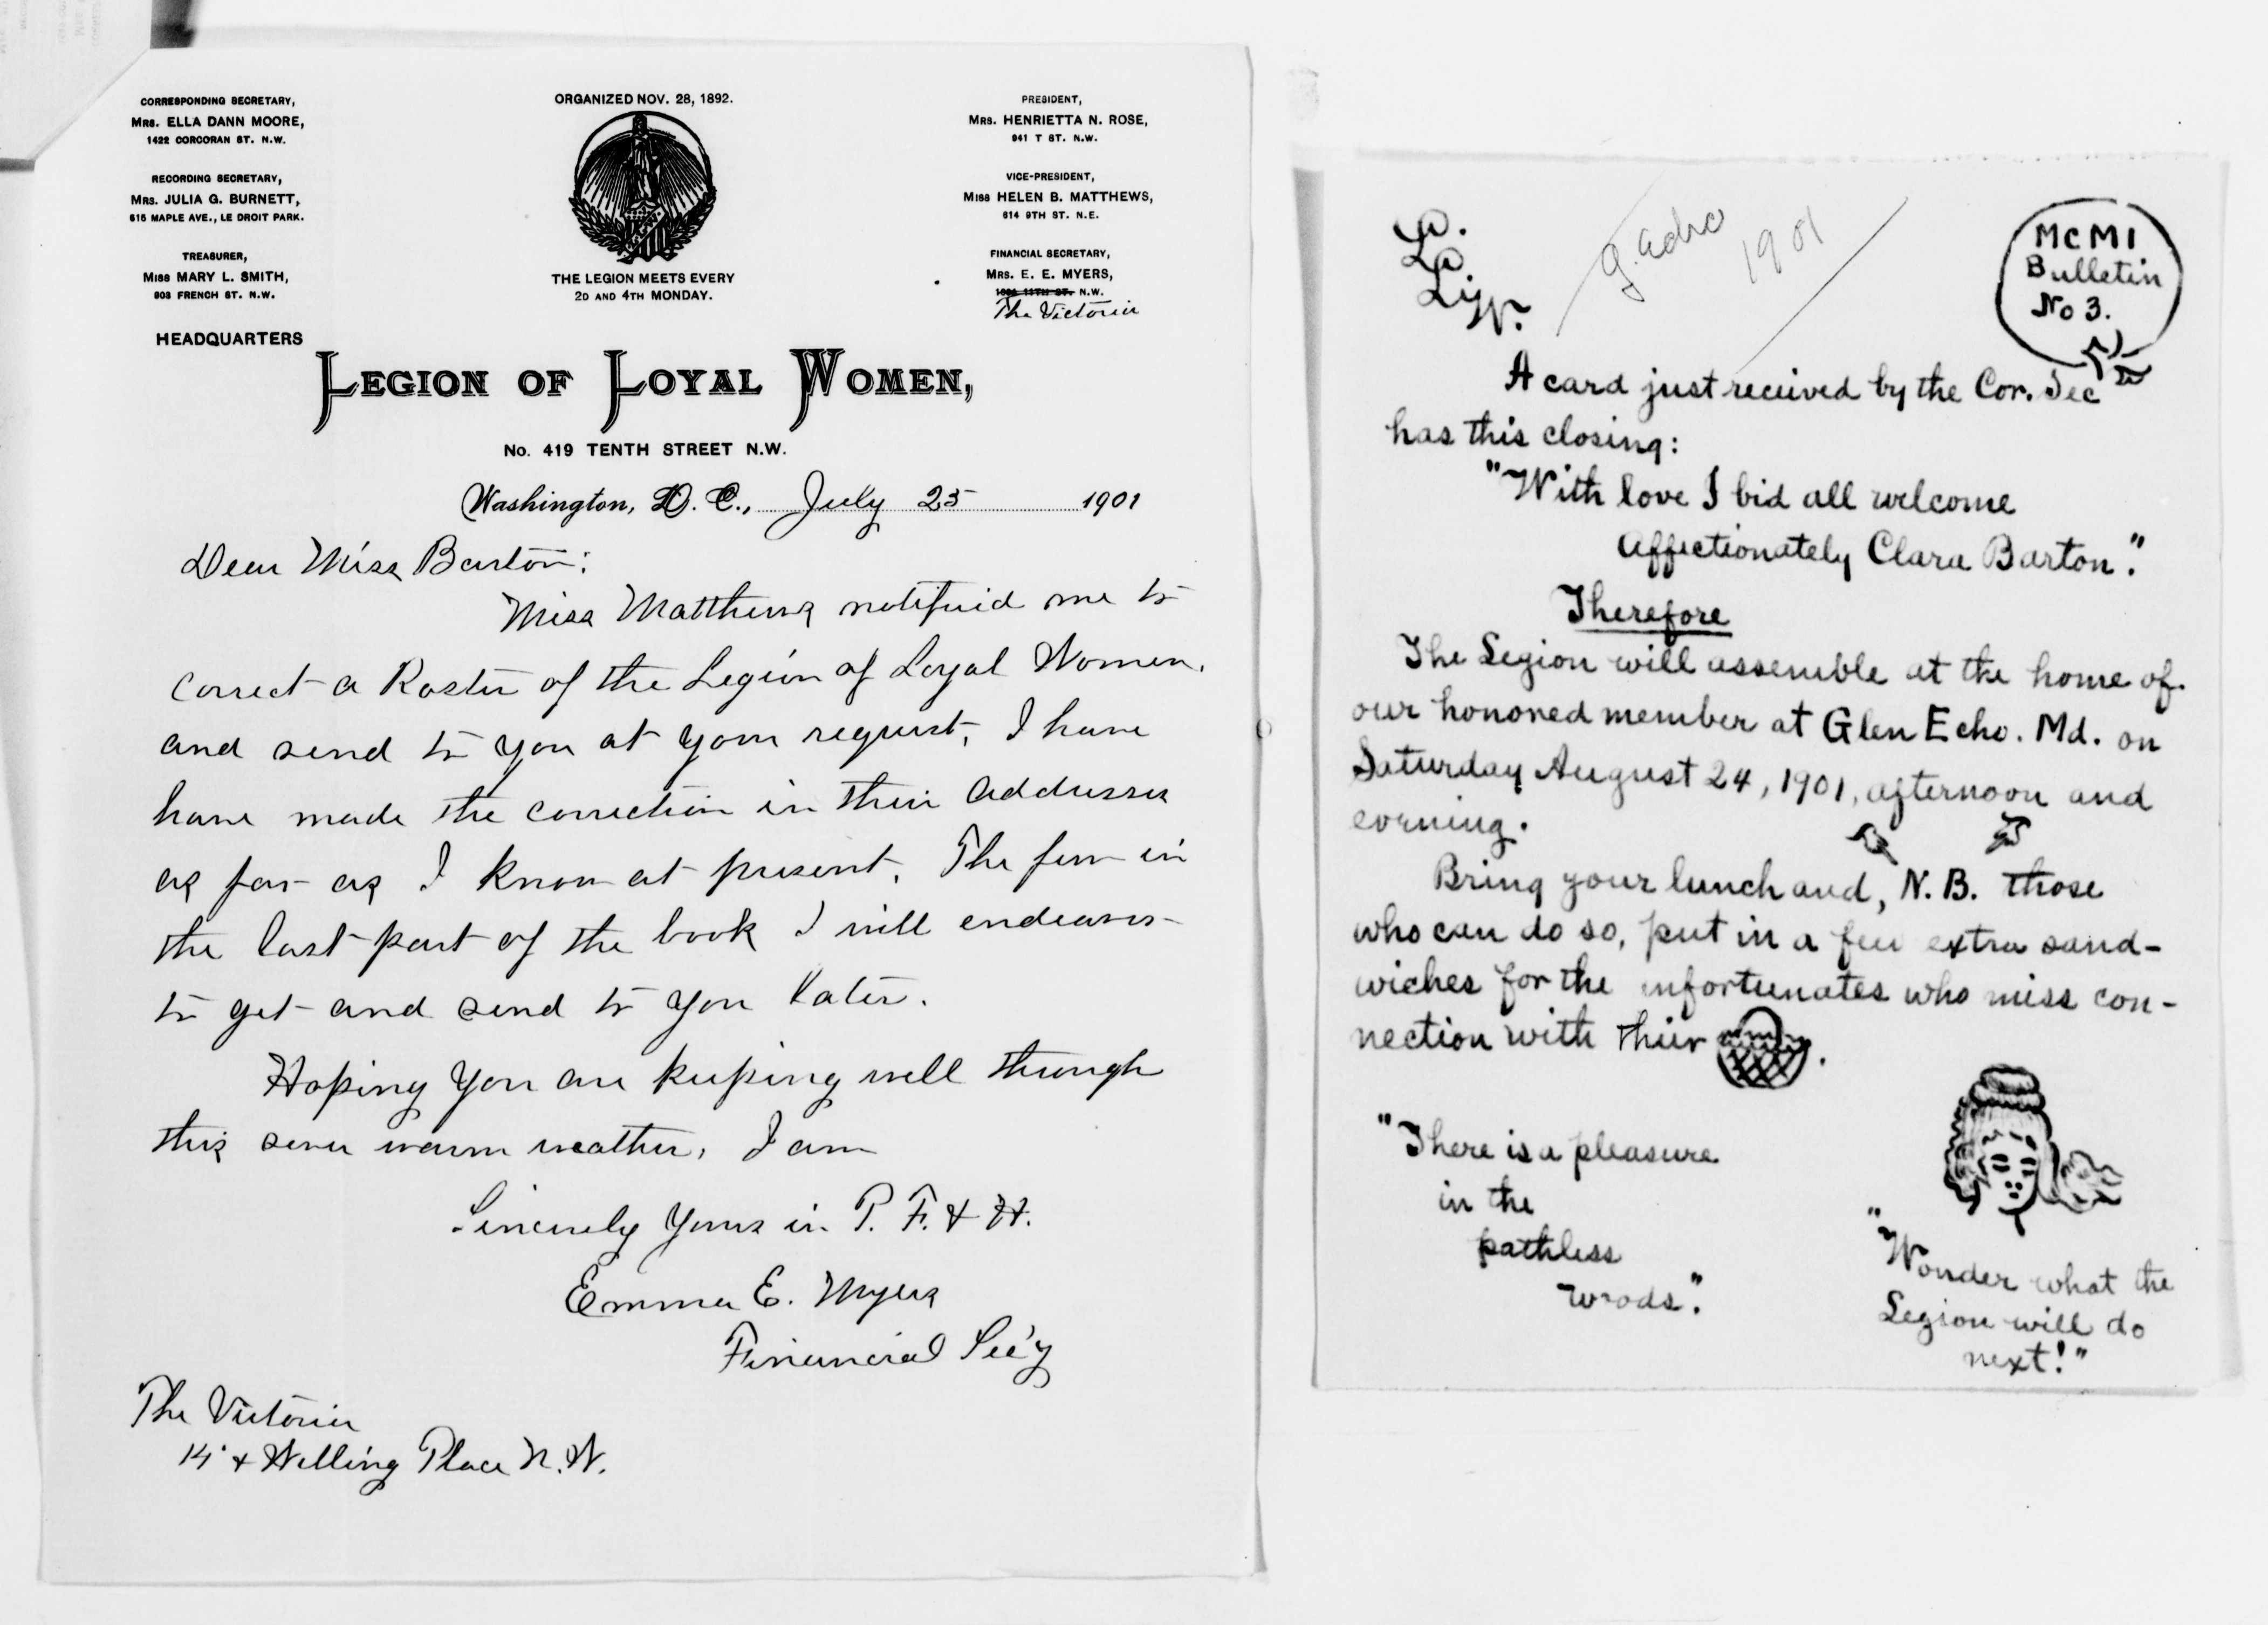 CORRESPONDING SECRETARY,
MRS. ELLA DANN MOORE,
1422 CORCORAN ST. N.W.
RECORDING SECRETARY,
MRS. JULIA G. BURNETT,
615 MAPLE AVE., LE DROIT PARK.
TREASURER,
MISS MARY L. SMITH,
903 FRENCH ST. N.W.
HEADQUARTERS
ORGANIZED NOV. 28, 1892.
THE LEGION MEETS EVERY
2D AND 4TH MONDAY.
PRESIDENT,
MRS. HENRIETTA N. ROSE,
941 T ST. N.W.
VICE-PRESIDENT,
MISS HELEN B. MATTHEWS,
614 9TH ST. N.E.
FINANCIAL SECRETARY,
MRS. E. E. MYERS,
N.W.
The Victoria
LEGION OF LOYAL WOMEN,
No. 419 TENTH STREET N.W.
Washington, D. C., July 25 1901
Dear Miss Barton:
Miss Matthews notified me to
correct a Roster of the Legion of Loyal Women,
and send to you at your request, I have
have made the correction in their addresses
as far as I know at present. The few in
the last part of the book I will endeavor
to get and send to you later.
Hoping you are keeping well through
this warm weather, I am
Sincerely Yours in P. F. & H.
Emma E. Myers
Financial Sec'y
The Victoria
14 & Welling Place N.W.
L.
L.
W.
1901
MCMI
Bulletin
No 3.
A card just received by the Cor. Sec
has this closing:
"With love I bid all welcome
Affectionately Clara Barton."
Therefore
The Legion will assemble at the home of
our honored member at Glen Echo. Md. on
Saturday August 24, 1901, afternoon and
evening.
Bring your lunch and, N.B. those
who can do so, put in a few extra sand-
wiches for the unfortunates who miss con-
nection with their .
"There is a pleasure
in the
pathless
woods."
"Wonder what the
Legion will do
next!"